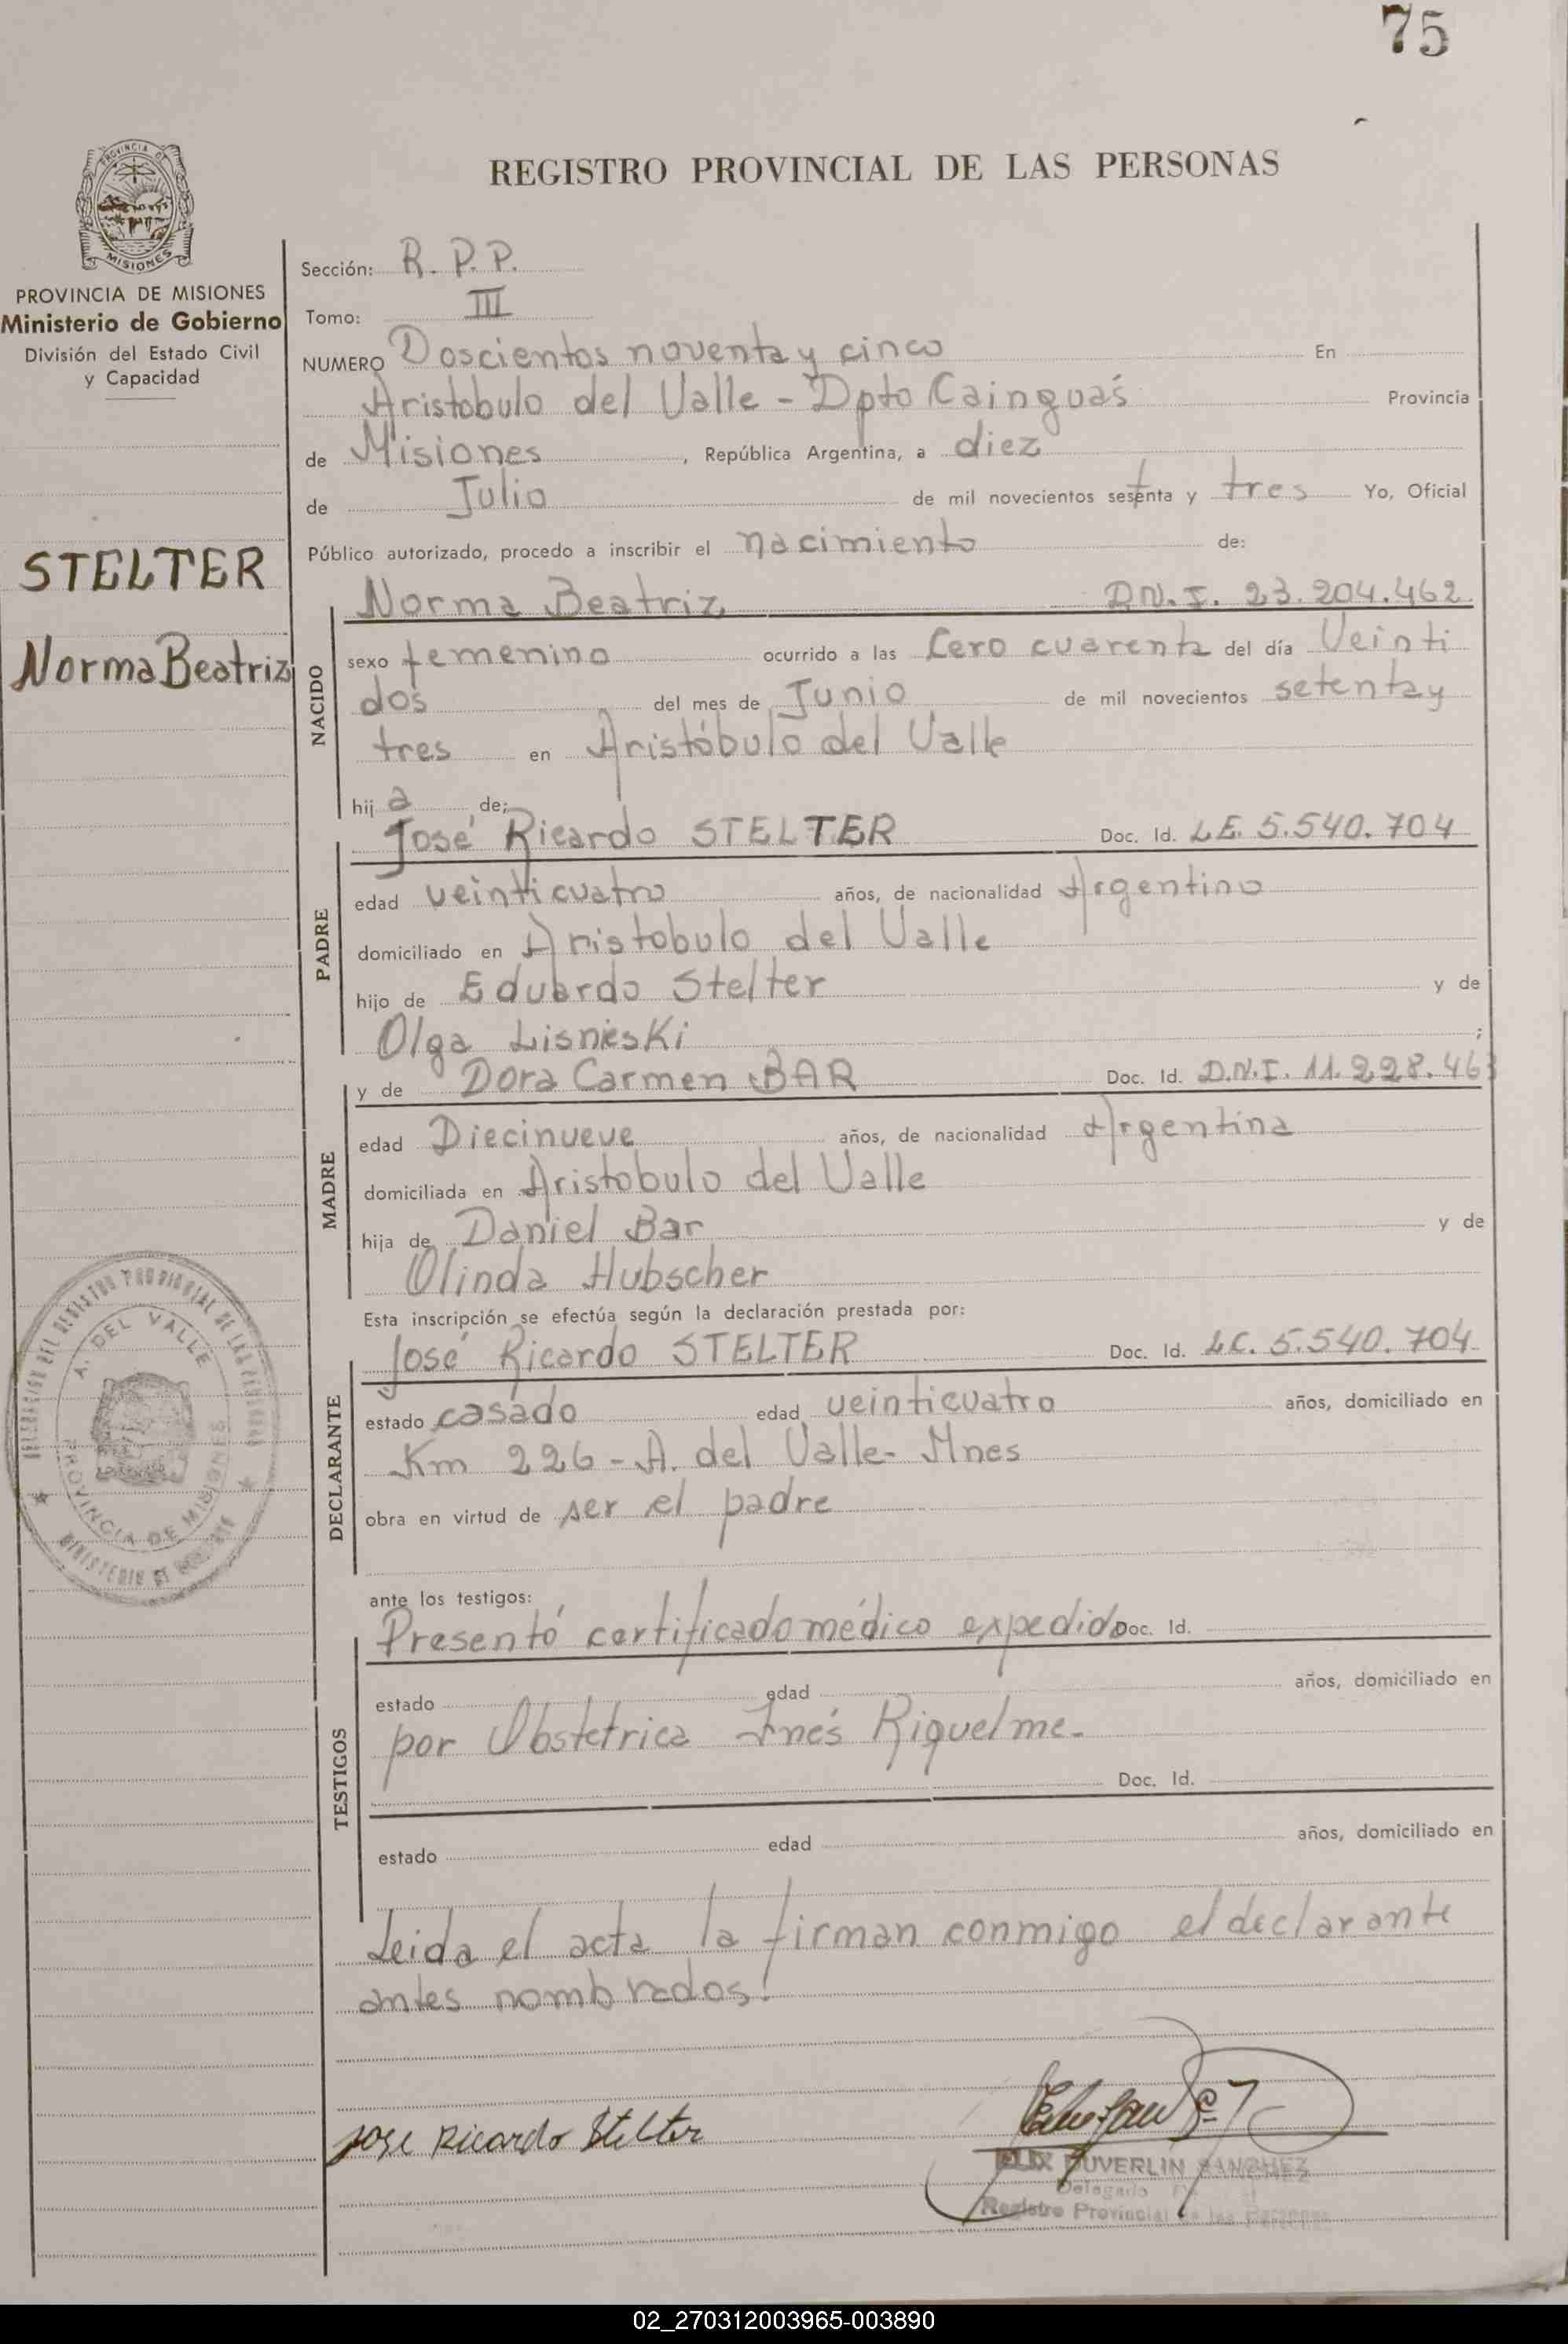 75
REGISTRO PROVINCIAL DE LAS PERSONAS
PROVINCIA DE MISIONES
PROVINCIA DE MISIONES
Ministerio de Gobierno
División del Estado Civil
y Capacidad
STELTER
Norma Beatriz
A. DEL VALLE
PROVINCIA DE MISIONES
Sección: R. P. P.
Tomo: III
NUMERO Doscientos noventa y cinco En
Aristobulo del Valle - Dpto Cainguás Provincia
de Misiones, República Argentina, a diez
de Julio de mil novecientos setenta y tres Yo, Oficial
Público autorizado, procedo a inscribir el nacimiento de:
NACIDO
Norma Beatriz D.N.I. 23.204.462
sexo femenino ocurrido a las Cero cuarenta del día Veinti
dos del mes de Junio de mil novecientos setenta y
tres en Aristóbulo del Valle
hij a de;
PADRE
José Ricardo STELTER Doc. Id. L.E. 5.540.704
edad veinticuatro años, de nacionalidad Argentino
domiciliado en Aristobulo del Valle
hijo de Eduardo Stelter y de
Olga Lisnieski ;
MADRE
y de Dora Carmen BAR Doc. Id. D.N.I. 11.228.463
edad Diecinueve años, de nacionalidad Argentina
domiciliada en Aristobulo del Valle
hija de Daniel Bar y de
Olinda Hubscher
Esta inscripción se efectúa según la declaración prestada por:
DECLARANTE
José Ricardo STELTER Doc. Id. L.C. 5.540.704
estado casado edad veinticuatro años, domiciliado en
Km 226 - A. del Valle - Mnes
obra en virtud de ser el padre
ante los testigos:
TESTIGOS
Presentó certificado médico expedido Doc. Id.
estado edad años, domiciliado en
por Obstetrica Inés Riquelme.
Doc. Id.
estado edad años, domiciliado en
Leida el acta la firman conmigo el declarante
antes nombrados!
Jose Ricardo Stelter
DUVERLIN SANCHEZ
Delegado
Registro Provincial de las Personas
02_270312003965-003890